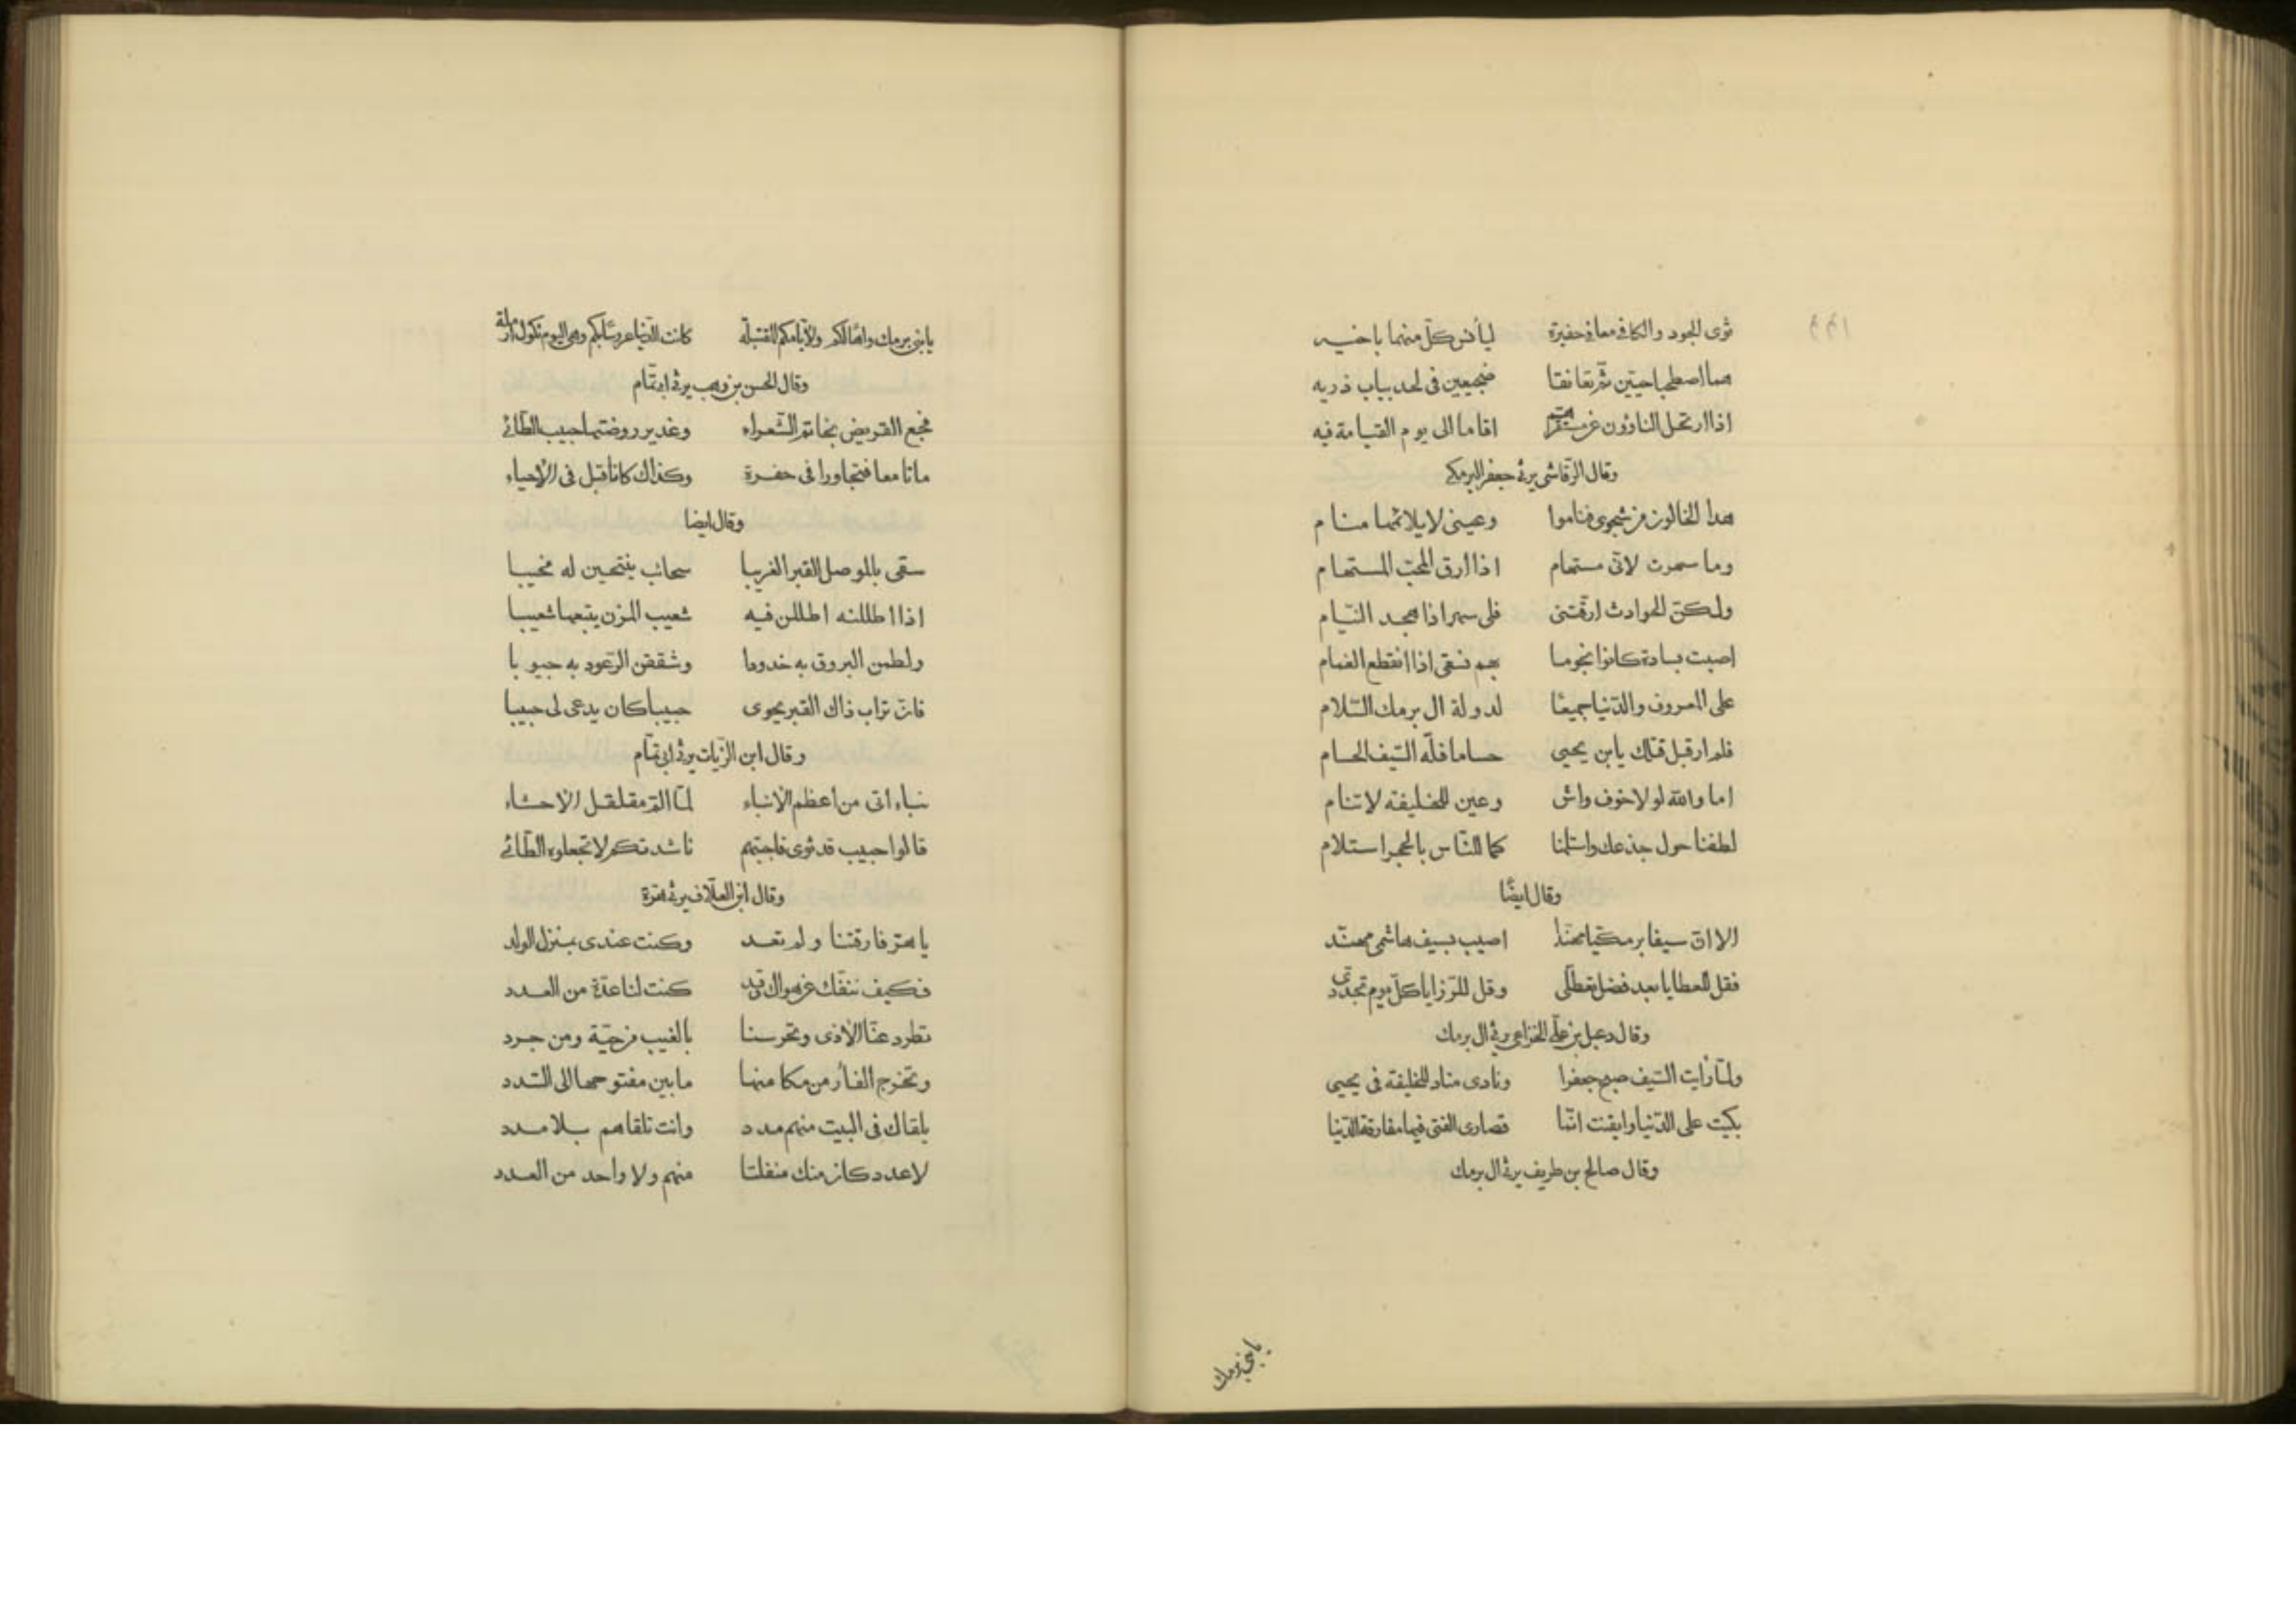 ثوى الجود والكافى معا فى حفيرة ليأنس كلّ منهما باخيه
هما اصطحبا حيّين ثمّ تعانقا ضجيعين فى لحد بباب ذريه
اذا ارتحل الثاوون عن مستقرّهم اقاما الى يوم القيامة فيه
وقال الرّقاشى يرثى جعفر البرمكى
هدا الخالون من شجوى فناموا وعينى لا يلائمها منام
وما سهرت لانّى مستهام اذا ارق المحبّ المستهام
ولكنّ الحوادث ارّقتنى فلى سهر اذا هجد النيّام
اصبت بسادة كانوا نجوما بهم نسقى اذا انقطع الغمام
على المعروف والدّنيا جميعًا لدولة ال برمك السّلام
فلم ار قبل قتلك يابن يحيى حساما فلّه السّيف الحسام
اما والله لولا خوف واش وعين للخليفة لا تنام
لطفنا حول جذعك واستلمنا كما للنّاس بالحجر استلام
وقال ايضًا
الا انّ سيفا برمكيّا مهنّدا اصيب بسيف هاشمى مهنّد
فقل للعطايا بعد فضل تعطّلى وقل للرّزايا كلّ يوم تجدّدى
وقال دعبل بن علىّ الخزاعى يرثى ال برمك
ولمّا رايت السّيف صبح جعفرا ونادى مناد للخليفة فى يحيى
بكيت على الدّنيا وايقنت انّما قصارى الفتى فيها مفارقة الدّنيا
وقال صالح بن طريف يرثى ال برمك
يا بنى برمك
يا بنى برمك واها لكم ولايّامكم المقتبلة
كانت الدّنيا عروسًا بكم وهى اليوم ثكول ارملة
وقال الحسن بن وهب يرثى ابى تمّام
فجع القريض بخاتم الشّعراء وغدير روضتها حبيب الطّائى
ماتا معا فتجاورا فى حفرة وكذاك كانا قبل فى الأحياء
وقال ايضا
سقى بالموصل القبر الغريبا سحائب ينتحبن له نحيبا
اذا اطللنه اطللن فيه شعيب المزن يتبعها شعيبا
ولطمن البروق به خدودا وشققن الرّعود به جيوبا
فانّ تراب ذاك القبر يحوى حبيبا كان يدعى لى حبيبا
وقال ابن الزّيات يرثى ابى تمّام
نباء اتى من اعظم الأنباء لمّا المّ مقلقل الأحشاء
قالوا حبيب قد ثوى فاجبتهم ناشدتكم لا تجعلوه الطّائى
وقال ابن العلّاف يرثى هرّة
يا هرّ فارقتنا ولم تعد وكنت عندى بمنزل الولد
فكيف ننفك عن هواك وقد كنت لنا عدّة من العدد
تطرد عنّا الأذى وتحرسنا بالغيب من حيّة ومن جرد
وتخرج الفأر من مكامنها ما بين مفتوحها الى السّدد
يلقاك فى البيت منهم مدد وانت تلقاهم بلا مدد
لا عدد كان منك منفلتا منهم ولا واحد من العدد